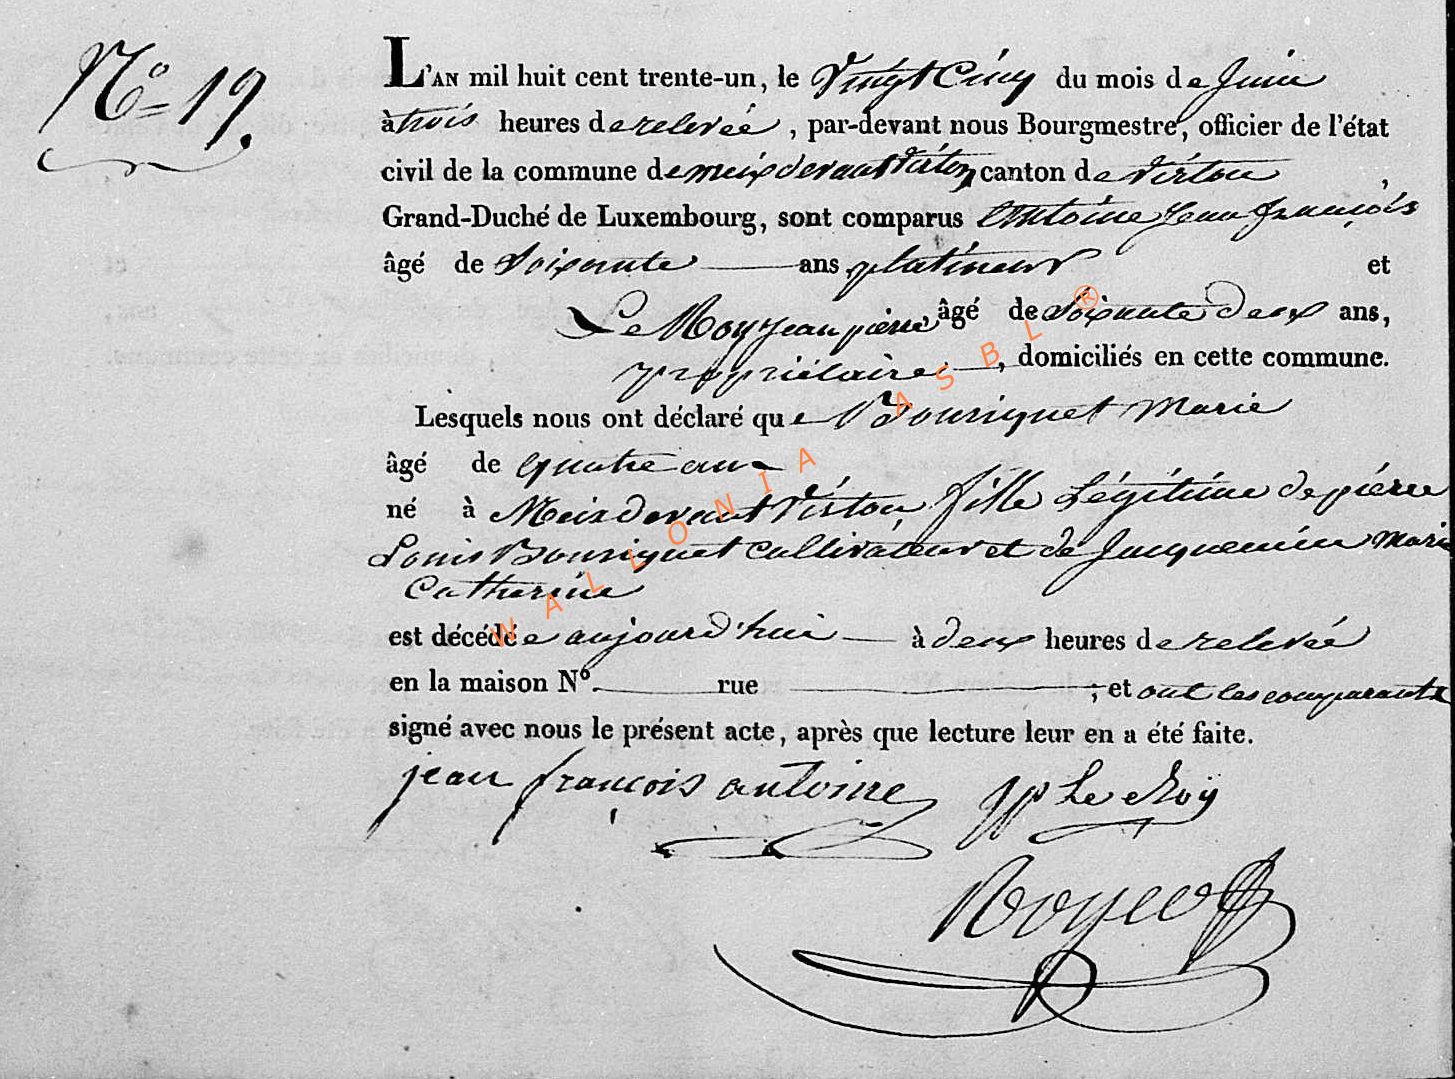 N.o 19.
L'AN mil huit cent trente-un, le Vingt Cinq du mois de Juin
à trois heures de relevée, par-devant nous Bourgmestre, officier de l'état
civil de la commune de meix devant Virton canton de Virton,
Grand-Duché de Luxembourg, sont comparus Antoine Jean françois
âgé de Soixante ans platineur et
Le Roy Jean pierre, âgé de Soixante deux ans,
propriétaire, domiciliés en cette commune.
Lesquels nous ont déclaré que Bouriquet Marie
âgé de quatre ans
né à Meix devant Virton, fille Légitime de pierre
Louis Bouriquet Cultivateur et de Jacquemin Marie
Catherine
est décédée aujourd'hui à deux heures de relevée
en la maison No. rue ; et ont les comparants
signé avec nous le présent acte, après que lecture leur en a été faite.
jean françois antoine JP Le Roÿ
WALLONIA ASBL ®